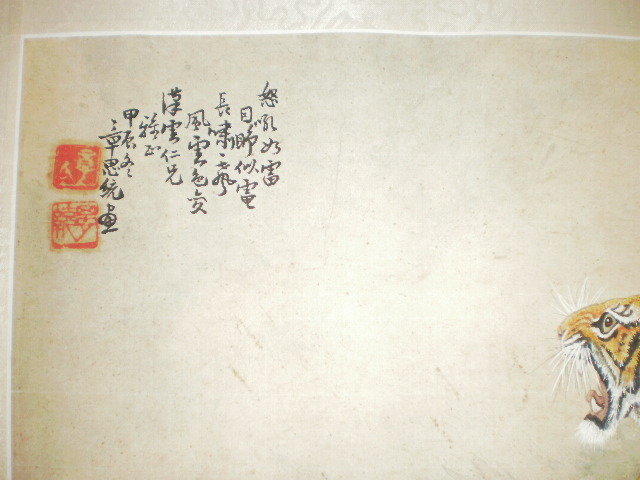 怒吼如雷
目睇似電
長嘯一聲
風雲色變
漢雲仁兄
雅正
甲辰冬
章思統畫